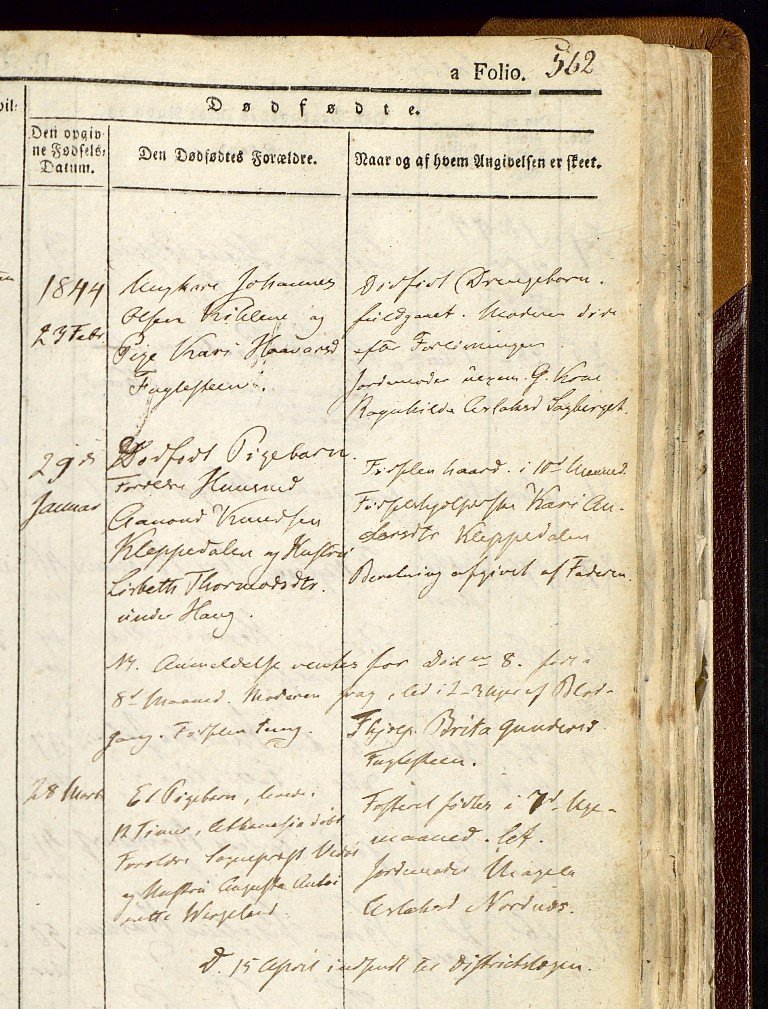 a Folio. 562
Dødfødte.
Den opgiv-
ne Fødsels-
Datum.
Den Dødfødtes Forældre.
Naar og af hvem Angivelsen er skeet.
1844
23 Febr
Ungkarl Johannes
Olsen og
Pige Kari Haavarsd
Fuglesteen.
Dødfødt Drengebarn.
fuldgaaet. Moderen døde
efter Forløsningen
Jordemoder G.
Ragnhilda Aslaksd Sagberget.
29de
Januar
Dødfødt Pigebarn.
Forældre Huusmd
Aamond Knudsen
Kleppedalen og Hustru
Lisbeth Thormodsdtr.
under Haug.
Fødselen haard. i 10d Maaned.
Fødselshjælperske Kari An-
dersdtr Kleppedalen
Beretning afgivet af Faderen.
Anmeldelse ventes for Død 8.
8d Maaned. Moderen svag, led i 2-3 Uger af Blod-
gang. Fødselen tung.
Fhjelp. Brita Gundersd
Fuglesteen.
28 Marts
Et Pigebarn, levede
12 Timer, Athanasia døbt
Forældre Sognepræst
og Hustru Augusta Antoi
nette Wergeland.
Fosteret fødtes i 7d
maaned. let.
Jordemoder
Aslaksd Nordnæs.
D. 15 April indsendt til Districtslægen.